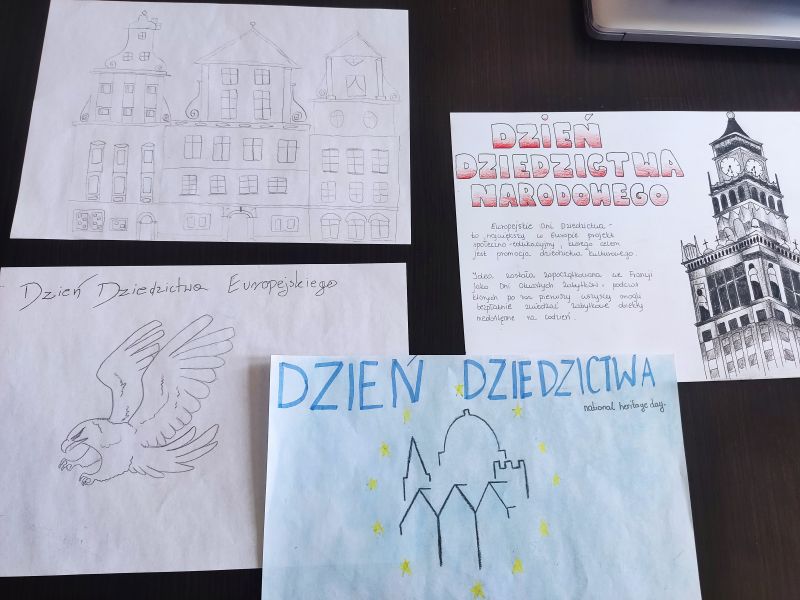 DZIEŃ
DZIEDZICTWA
NARODOWEGO
Europejskie Dni Dziedzictwa -
to największy w Europie projekt
społeczno-edukacyjny, którego celem
jest promocja dziedzictwa kulturowego.
Idea została zapoczątkowana we Francji
jako Dni Otwartych Zabytków, podczas
których po raz pierwszy wszyscy mogli
bezpłatnie zwiedzać zabytkowe obiekty
niedostępne na codzień.
Dzień Dziedzictwa Europejskiego
DZIEŃ DZIEDZICTWA
national heritage day.